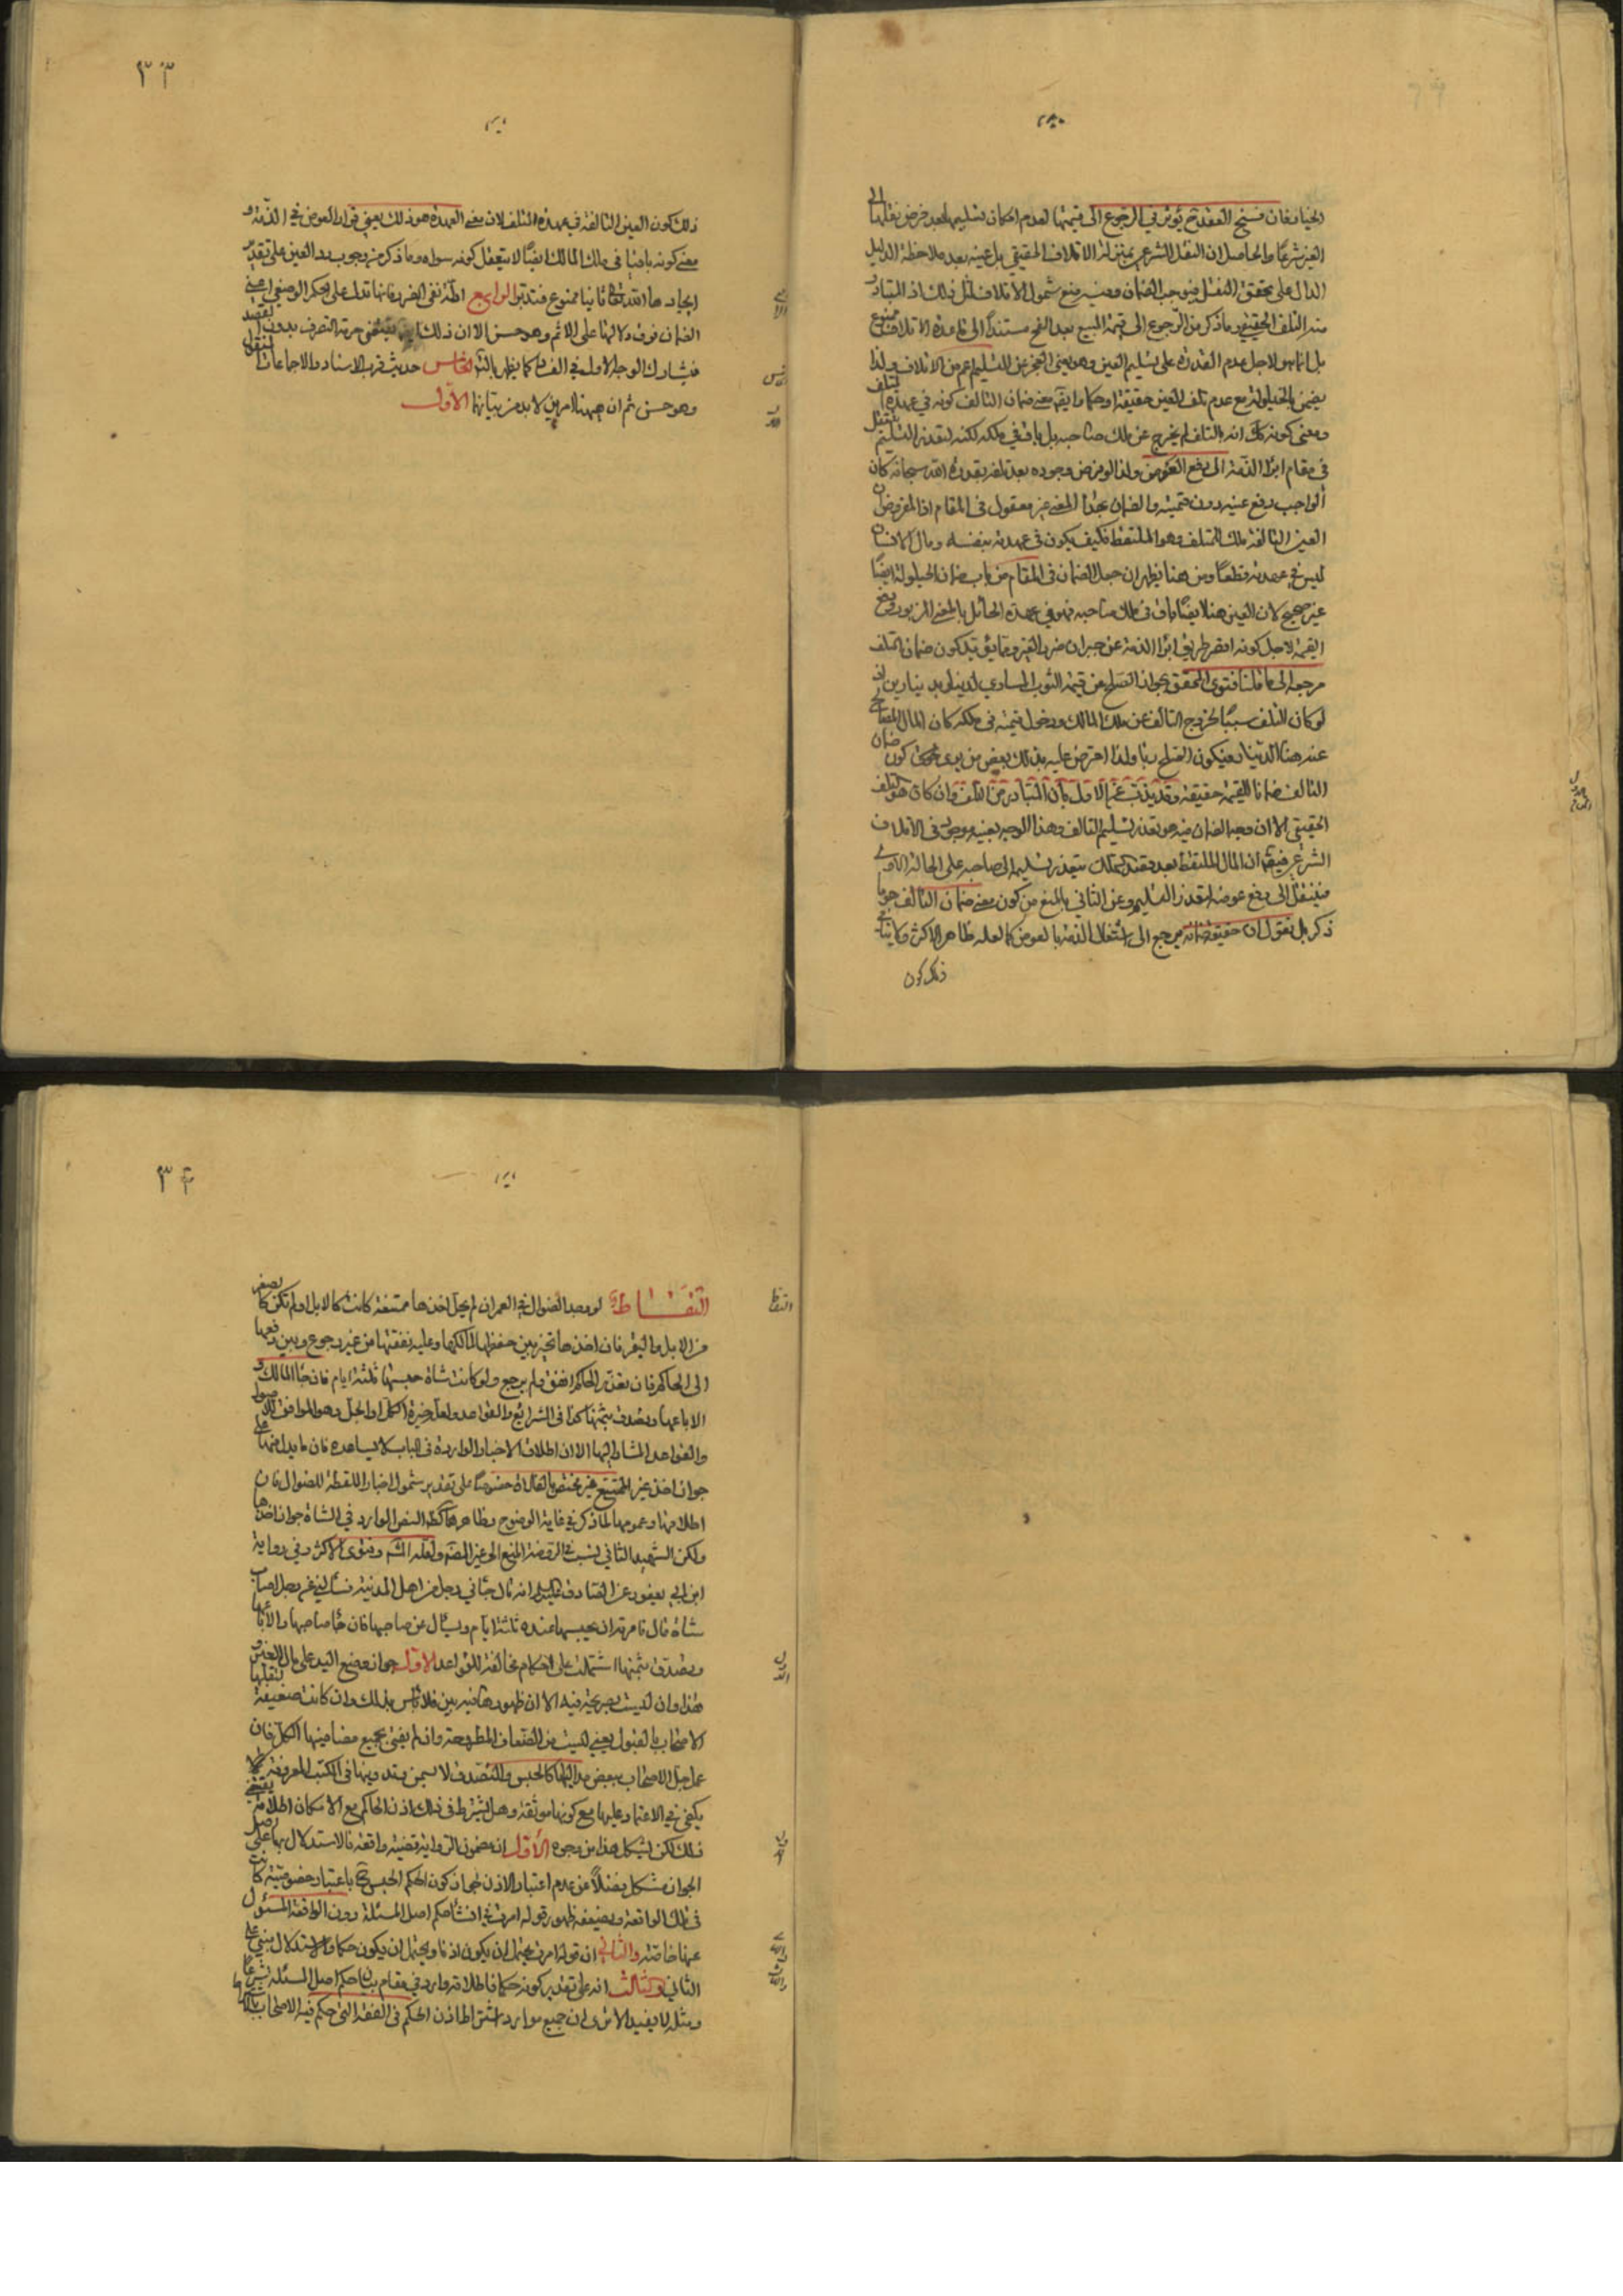 الخيار فان فسخ العقد ح يؤثر في الرجوع الى قيمتها لعدم امكان تسليمها بعد فرض نقلها الى
الغير شرعا والحاصل ان النقل الشرعي بمنزلة الاتلاف الحقيقي بل عينه بعد ملاحظة الدليل
الدال على تحقق النقل فيوجب الضمان وفيه منع شمول الاتلاف لمثل ذلك اذ المتبادر
منه التلف الحقيقي وما ذكر من الرجوع الى قيمة المبيع بعد الفسخ مستندا الى قاعدة الاتلاف ممنوع
بل انما هو لاجل عدم القدرة على تسليم العين وهو يعني العجز عن التسليم اعم من الاتلاف ولذا
يضمن بالحيلولة مع عدم تلف العين حقيقة او حكما وايضا معنى ضمان التالف كونه في عهدة المتلف
ومعنى كونه كك انه بالتلف لم يخرج عن ملك صاحبه بل باق في ملكه لكنه لتعذر التسليم ينتقل
في مقام ابراء الذمة الى دفع العوض ولذا لو فرض وجوده بعد تلفه بقدرة الله سبحانه كان
الواجب دفع عينه دون قيمته والضمان بهذا المعنى غير معقول في المقام اذ المفروض ان
العين التالفة ملك للمتلف وهو الملتقط فكيف يكون في عهدته بنفسه ومال الانسان
ليس في عهدته قطعا ومن هنا يظهر ان جعل الضمان في المقام من باب ضمان الحيلولة ايضا
غير صحيح لان العين هنا ايضا باق في ملك صاحبه فهو في عهدة الحائل بالمعنى المزبور ودفع
القيمة لاجل كونه اقصر طريق ابراء الذمة عن جبران ضرر الغير ومما يؤيد كون ضمان التلف
مرجعه الى ما قلنا فتوى المحقق بجواز الصلح عن قيمة الثوب المساوي لدينار بدينارين اذ
لو كان التلف سببا لخروج التالف عن ملك المالك ودخول قيمته في ملكه كان المال المصالح
عنه هنا الدينار فيكون الصلح ربا ولذا اعترض عليه بذلك بعض من يرى كون ضمان
التالف ضمانا للقيمة حقيقة وقد يذب عن الاول بان المتبادر من التلف وان كان هو التلف
الحقيقي الا ان وجه الضمان فيه هو تعذر تسليم التالف وهذا الوجه بعينه موجود في الاتلاف
الشرعي فيقال ان المال الملتقط بعد قصد التملك يتعذر تسليمه الى صاحبه على الحالة الاولى
فينتقل الى دفع عوضه لتعذر التسليم وعن الثاني بالمنع من كون معنى ضمان التالف هو ما
ذكر بل نقول ان حقيقة ضمانه يرجع الى اشتغال الذمة بالعوض كما لعله ظاهر الاكثر
ذلك كون
٣٣
ذلك كون العين التالفة في عهدة المتلف لان معنى العهدة هو ذلك يعني قرار العوض في الذمة و
معنى كونه باقيا في ملك المالك ايضا لا يتعقل كونه سواه وما ذكر من وجوب رد العين على تقدير
ايجادها الله تعالى ثانيا ممنوع فتدبر الرابع ادلة نفي الضرر فانها تدل على الحكم الوضعي اعني
الضمان فوق دلالتها على الاثم وهو حسن الا ان ذلك يقتضي حرمة التصرف بدون
فيشارك الوجه الاول في الفساد كما يظهر بالتأمل الخامس حديث قرب الاسناد والاجماعات المنقولة
وهو حسن ثم ان ههنا امرين لا بد من بيانهما الاول
٣٤
التقاط لو وجد الضوال في العمران لم يحل اخذها ممتنعة كانت كالابل او لم تكن كالصغير
من الابل والبقر فان اخذها تخير بين حفظها لمالكها وعليه نفقتها من غير رجوع وبين دفعها
الى الحاكم فان تعذر الحاكم انفق ولم يرجع ولو كانت شاة حبسها ثلثة ايام فان جاء المالك و
الا باعها وتصدق بثمنها كذا في الشرائع والقواعد وهو الموافق للاصول
والقواعد المشار اليها الا ان اطلاق الاخبار الواردة في الباب لا يساعده
جواز اخذ غير الممتنع غير مختص بالفلاة خصوصا على تقدير شمول اخبار اللقطة للضوال فان
اطلاقها وعمومها لما ذكر في غاية الوضوح وظاهرها النص الوارد في الشاة جواز اخذها
ولكن الشهيد الثاني نسب في الروضة المنع الى غير الممتنع ولعله المشهور وفتوى الاكثر وفي رواية
ابن ابي يعفور عن الصادق عليه السلام انه قال جائني رجل من اهل المدينة فسألني عن رجل اصاب
شاة قال فامرته ان يحبسها عنده ثلثة ايام ويسأل عن صاحبها فان جاء صاحبها والا باعها
وتصدق بثمنها اشتملت على احكام مخالفة للقواعد الاول جواز وضع اليد على مال الغير و
هذا وان ليست بصريحة فيه الا ان ظهورها فيه بين فلا بأس بذلك وان كانت ضعيفة لتلقيها
الاصحاب بالقبول يعني ليست من الضعاف المطروحة وان لم يفتي بجميع مضامينها الكل فان
عمل جل الاصحاب ببعض مداليلها كالحبس والتصدق لا سيما من تدوينها في الكتب المعروفة مما
يكفي في الاعتماد عليها مع كونها موثقة وهل يشترط في ذلك اذن الحاكم مع الامكان اطلاقه يقتضي
ذلك لكن يشكل هذا من وجوه الاول ان مضمون الرواية قضية واقعة فالاستدلال بها على اصل
الجواز مشكل فضلا عن عدم اعتبار الاذن لجواز كون الحكم الحبس ح باعتبار خصوصية كانت
في تلك الواقعة ويضعفه ظهور قوله امرته في انشاء حكم اصل المسئلة دون الواقعة المسئول
عنها خاصة والثاني ان قوله امرته يحتمل ان يكون اذنا ويحتمل ان يكون حكما والاستدلال مبني على
الثاني والثالث انه على تقدير كونه حكما فاطلاقه وارد في مقام بيان حكم اصل المسئلة شرعا
ومثله لا يفيد الا ترى ان جميع موارد اشتراط اذن الحاكم في الفقه التي حكم فيه الاصحاب